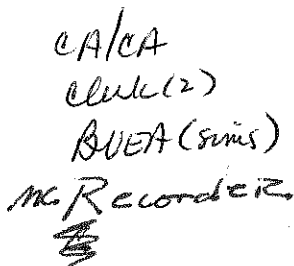 CA/CA
Clerk(2)
BUEA(Sims)
MC Recorder